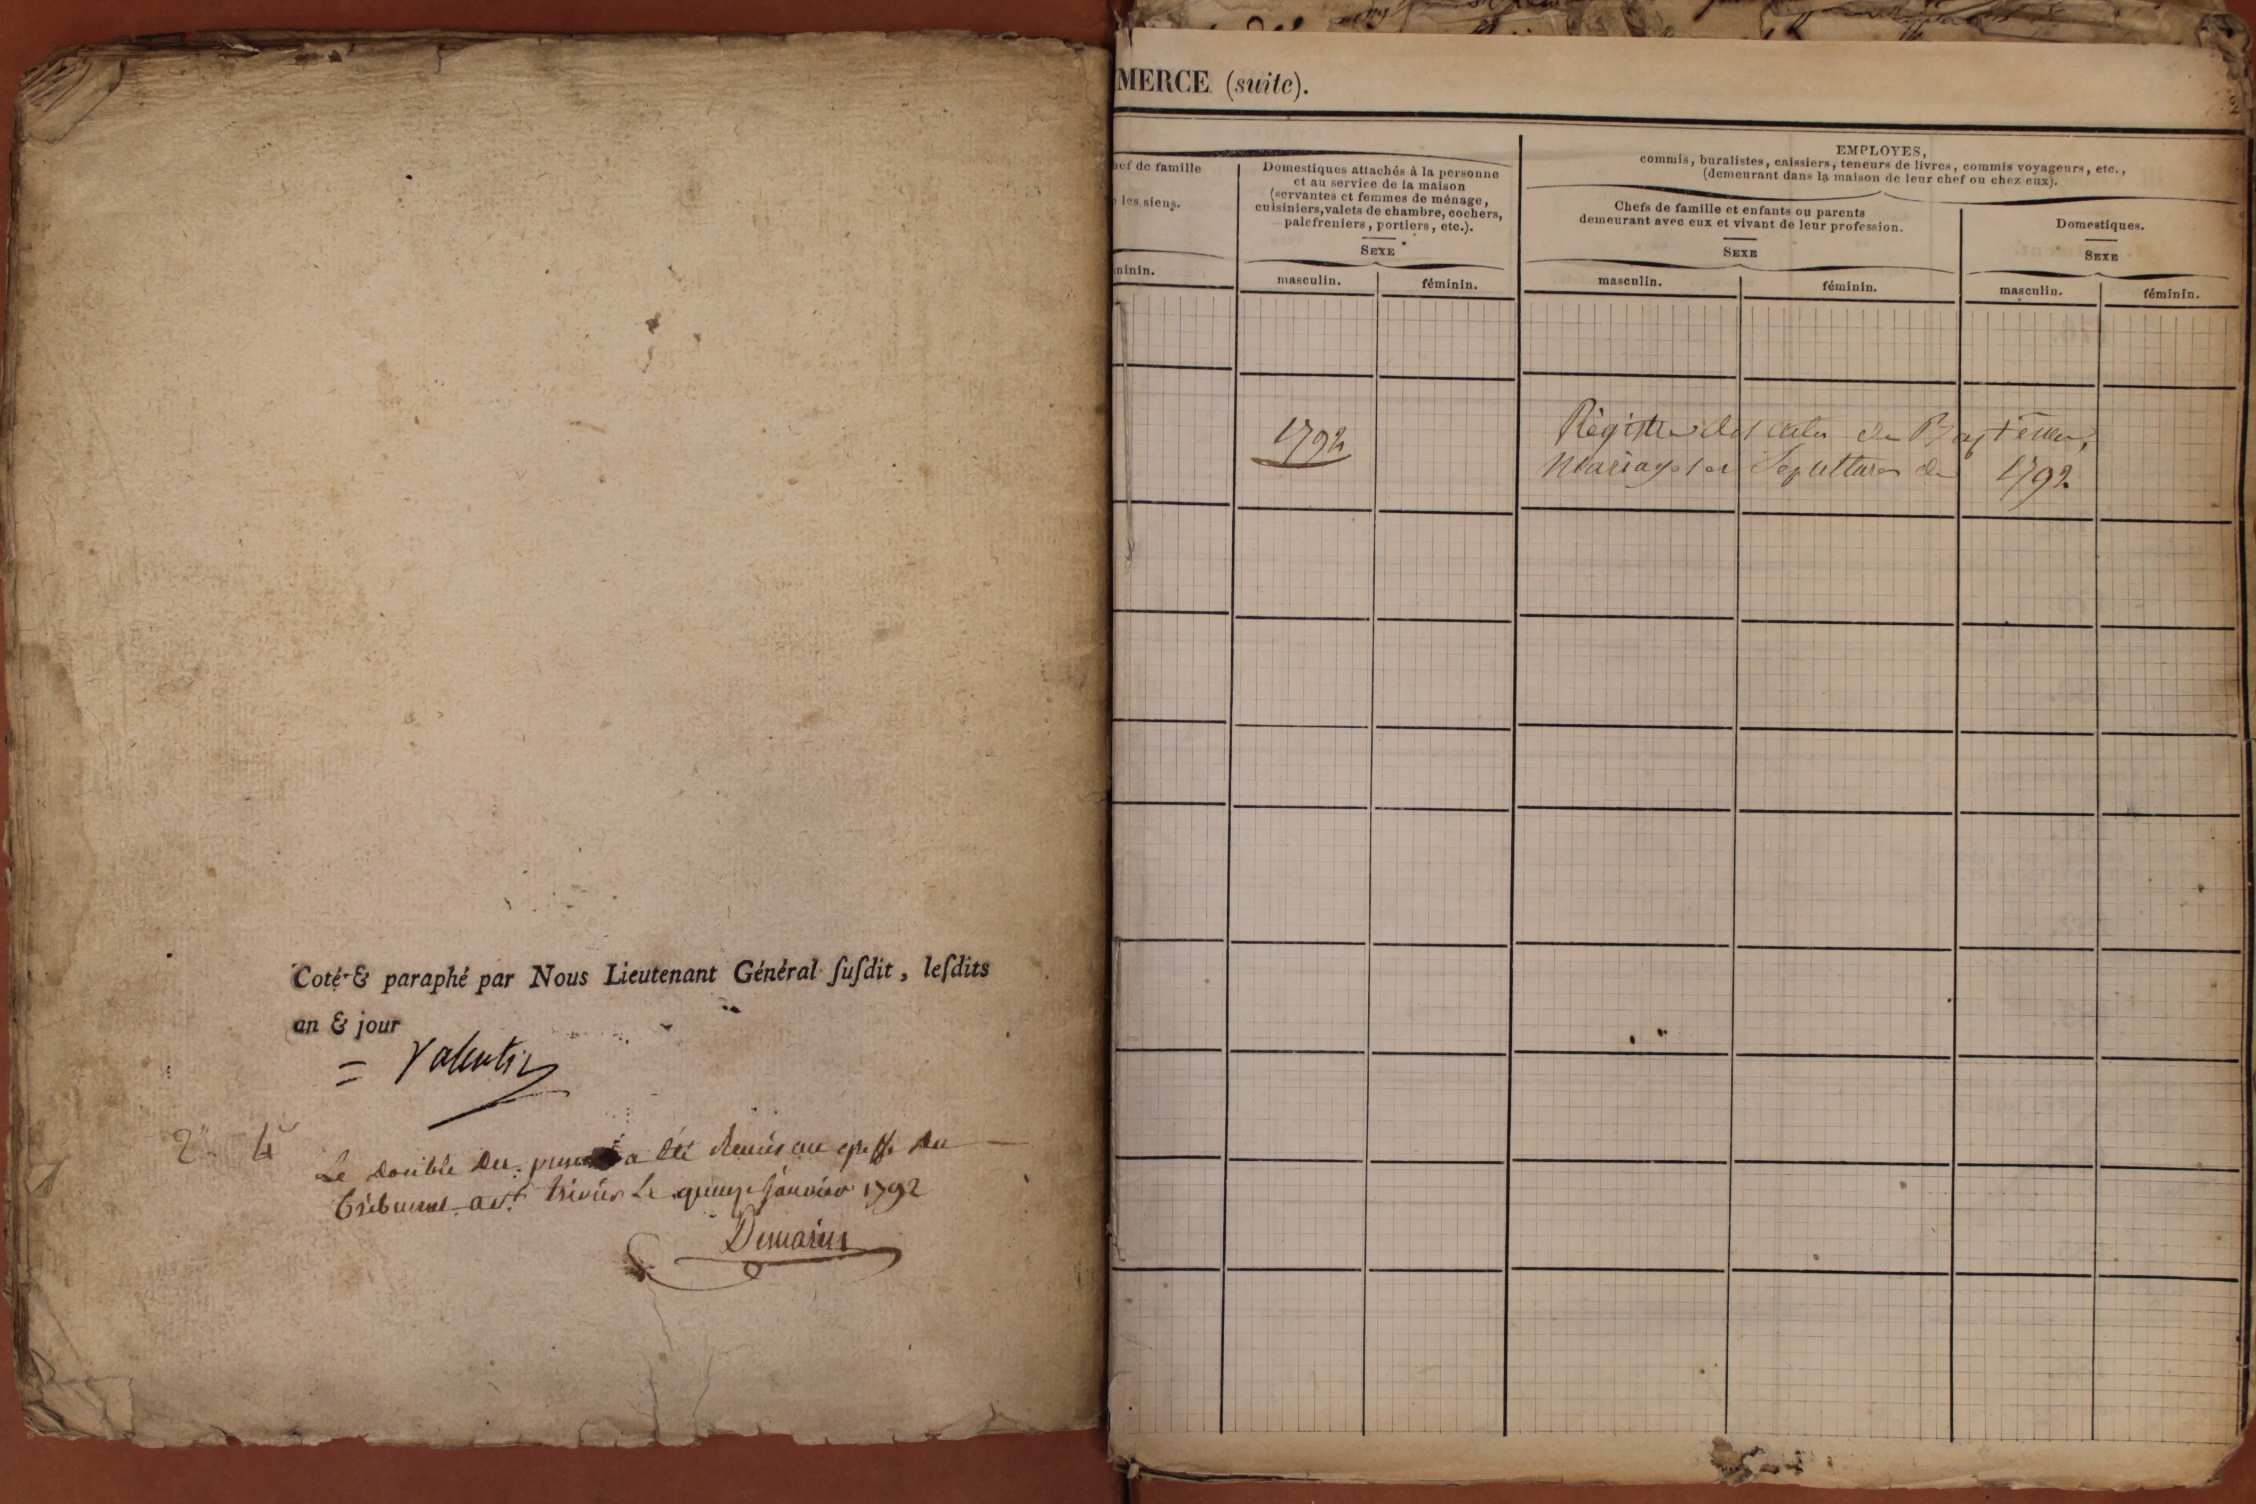 Coté & paraphé par Nous Lieutenant Général ſuſdit, leſdits
an & jour
= Valentin
2" 4
Le double du a été Remis au greffe du
tribunal a st. trivier Le quinze Janvier 1792
MERCE (suite).
hef de famille
les siens.
minin.
Domestiques attachés à la personne
et au service de la maison
(servantes et femmes de ménage,
cuisiniers, valets de chambre, cochers,
palefreniers, portiers, etc.).
SEXE
masculin. féminin.
EMPLOYES,
commis, buralistes, caissiers, teneurs de livres, commis voyageurs, etc.,
(demeurant dans la maison de leur chef ou chez eux).
Chefs de famille et enfants ou parents
demeurant avec eux et vivant de leur profession.
SEXE
masculin. féminin.
Domestiques.
SEXE
masculin. féminin.
1792
Régistre des actes de Baptêmes,
Mariages et Sepultures de 1792